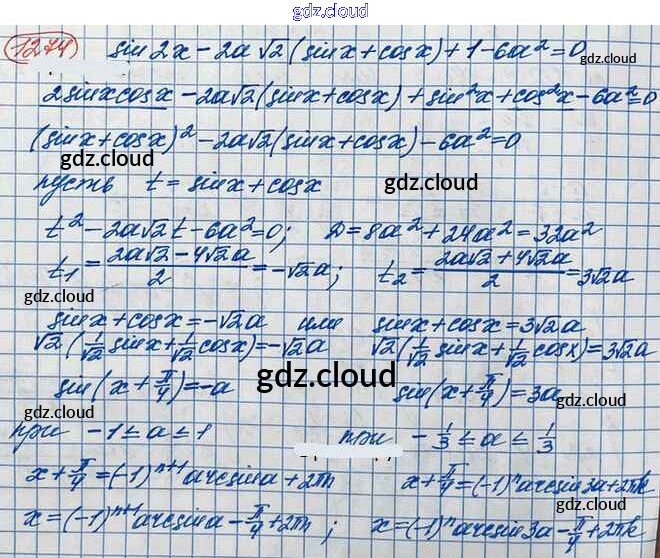 gdz.cloud
1274) sin 2x − 2a√2 (sin x + cos x) + 1 − 6a² = 0
gdz.cloud
2 sin x cos x − 2a√2 (sin x + cos x) + sin² x + cos² x − 6a² = 0
(sin x + cos x)² − 2a√2 (sin x + cos x) − 6a² = 0
gdz.cloud gdz.cloud
пусть t = sin x + cos x
gdz.cloud
t² − 2a√2 t − 6a² = 0; D = 8a² + 24a² = 32a²
t₁ = (2a√2 − 4√2a)/2 = −√2a; t₂ = (2a√2 + 4√2a)/2 = 3√2a
gdz.cloud gdz.cloud
sin x + cos x = −√2a или sin x + cos x = 3√2a
√2 (1/√2 sin x + 1/√2 cos x) = −√2a √2 (1/√2 sin x + 1/√2 cos x) = 3√2a
gdz.cloud gdz.cloud
sin (x + π/4) = −a sin (x + π/4) = 3a
gdz.cloud gdz.cloud
при −1 ≤ a ≤ 1 при −1/3 ≤ a ≤ 1/3
gdz.cloud
x + π/4 = (−1)ⁿ⁺¹ arcsin a + 2πn x + π/4 = (−1)ⁿ arcsin 3a + 2πk
gdz.cloud gdz.cloud
x = (−1)ⁿ⁺¹ arcsin a − π/4 + 2πn; x = (−1)ⁿ arcsin 3a − π/4 + 2πk
gdz.cloud gdz.cloud